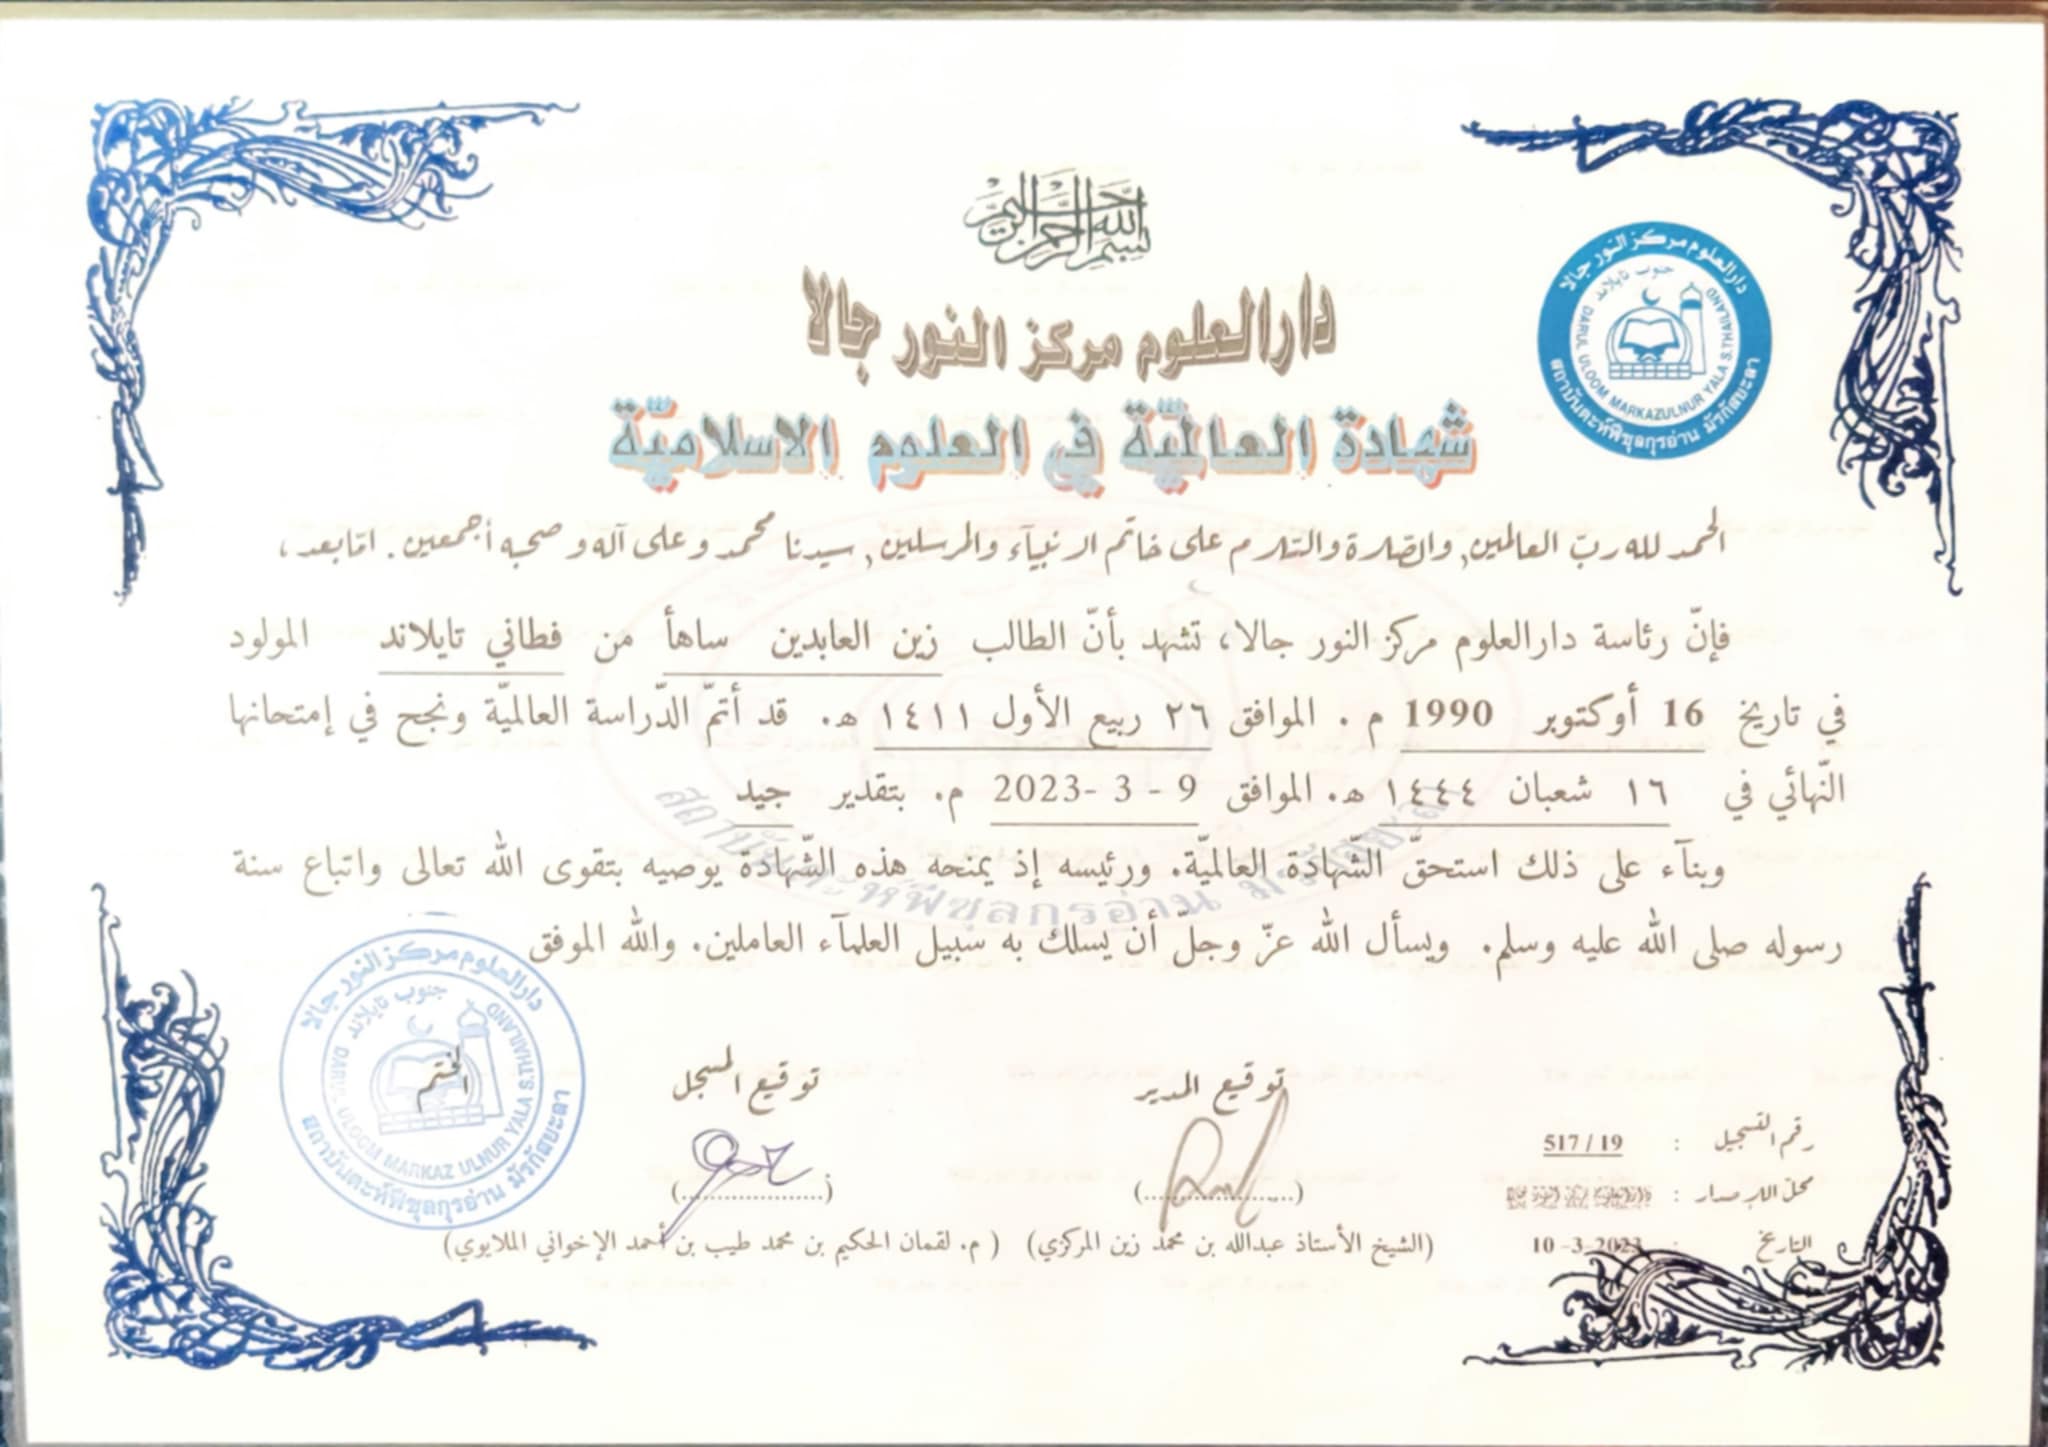 بسم الله الرحمن الرحيم
دارالعلوم مركز النور جالا
شهادة العالميّة في العلوم الاسلاميّة
دارالعلوم مركز النور جالا
جنوب تايلاند
DARUL ULOOM MARKAZULNUR YALA S.THAILAND
สถาบันตะห์ฟีซุลกุรอ่าน มัรกัสยะลา
الحمد لله ربّ العالمين, والصّلاة والسّلام على خاتم الانبيآء والمرسلين, سيدنا محمد وعلى آله وصحبه أجمعين. امّابعد،
فإنّ رئاسة دارالعلوم مركز النور جالا، تشهد بأنّ الطالب زين العابدين ساهأ من فطاني تايلاند المولود
في تاريخ 16 أوكتوبر 1990 م. الموافق ٢٦ ربيع الأول ١٤١١ ھ. قد أتمّ الدّراسة العالميّة ونجح في إمتحانها
النّهائي في ١٦ شعبان ١٤٤٤ ھ. الموافق 9 - 3 -2023 م. بتقدير جيد
وبنآء على ذلك استحقّ الشّهادة العالميّة. ورئيسه إذ يمنحه هذه الشّهادة يوصيه بتقوى الله تعالى واتباع سنة
رسوله صلى الله عليه وسلم. ويسأل الله عزّ وجلّ أن يسلك به سبيل العلمآء العاملين. والله الموفق
สถาบันตะห์ฟีซุลกุรอ่าน มัรกัสยะลา
رقم التسجيل : 517 / 19
محلّ الاصدار :
التاريخ : 10 -3-2023
توقيع المدير
(....................)
(الشيخ الأستاذ عبدالله بن محمد زين المركزي)
توقيع المسجل
(....................)
( م. لقمان الحكيم بن محمد طيب بن أحمد الإخواني الملايوي)
الختم
دارالعلوم مركز النور جالا
جنوب تايلاند
DARUL ULOOM MARKAZ ULNUR YALA S.THAILAND
สถาบันตะห์ฟีซุลกุรอ่าน มัรกัสยะลา